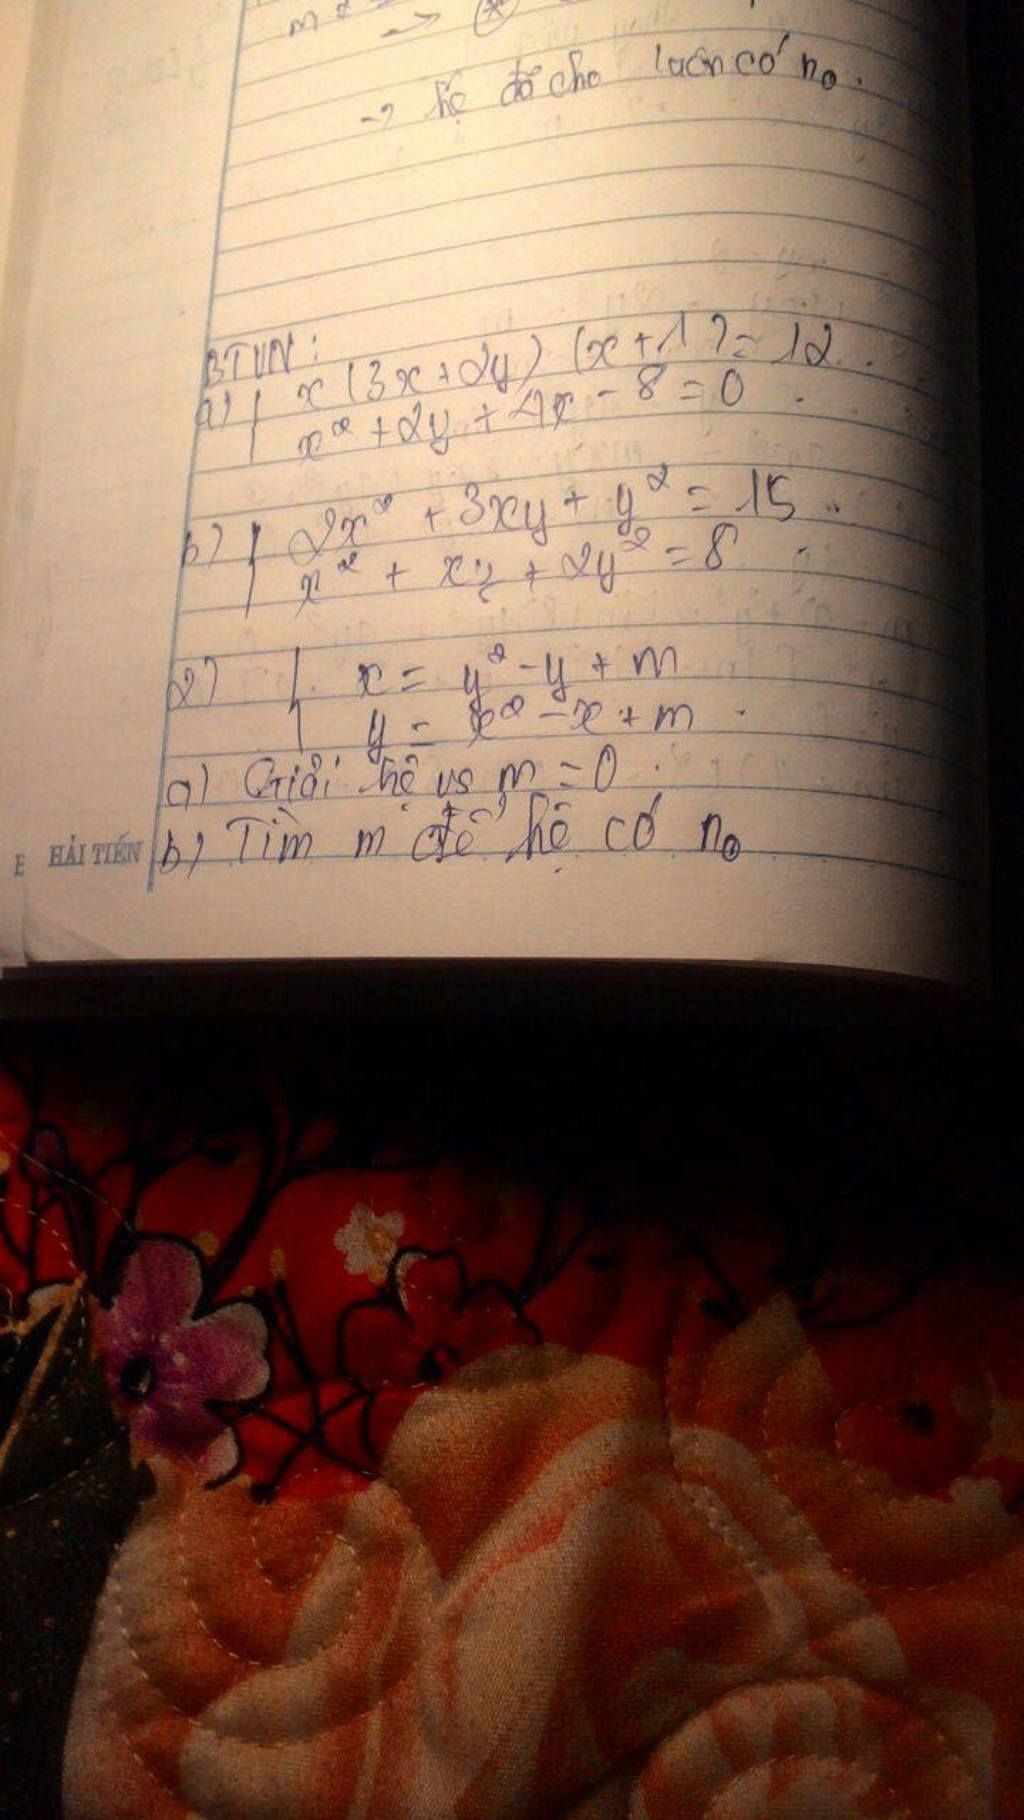 m²
→ (*)
→ hệ đã cho luôn có n₀.
BTVN:
a) { x(3x+2y)(x+1) = 12.
x² + 2y + 4x - 8 = 0.
b) { 2x² + 3xy + y² = 15
x² + xy + 2y² = 8
2) { x = y² - y + m
y = x² - x + m.
a) Giải hệ vs m = 0.
b) Tìm m để hệ có n₀
HẢI TIẾN